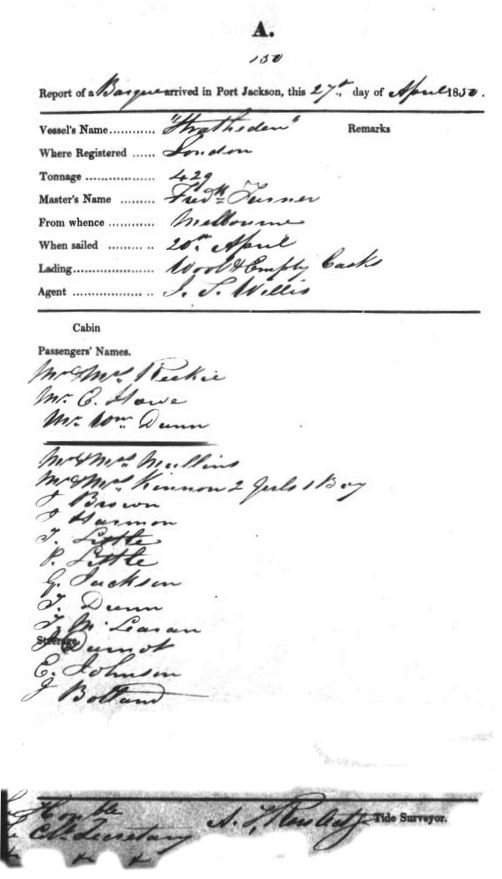 A.
150
Report of a Barque arrived in Port Jackson, this 27th day of April 1850.
Vessel's Name............ "Stratheden" Remarks
Where Registered ...... London
Tonnage .................. 429
Master's Name ......... Fredk Turner
From whence ............ Melbourne
When sailed .......... .. 20th April
Lading..................... Wool & Empty Casks
Agent .................. .. J. S. Willis
Cabin
Passengers' Names.
Mr & Mrs
Mr C. Howe
Mr Wm Dunn
Mr & Mrs Mullins
Mr & Mrs Kinnon 2 Girls 1 Boy
J Brown
J Harmon
T. Little
P. Little
G. Jackson
T. Dunn
T. McLearan
Steerage.
E. Johnson
J Bolland
Honble
Col Secretary
A. Tide Surveyor.